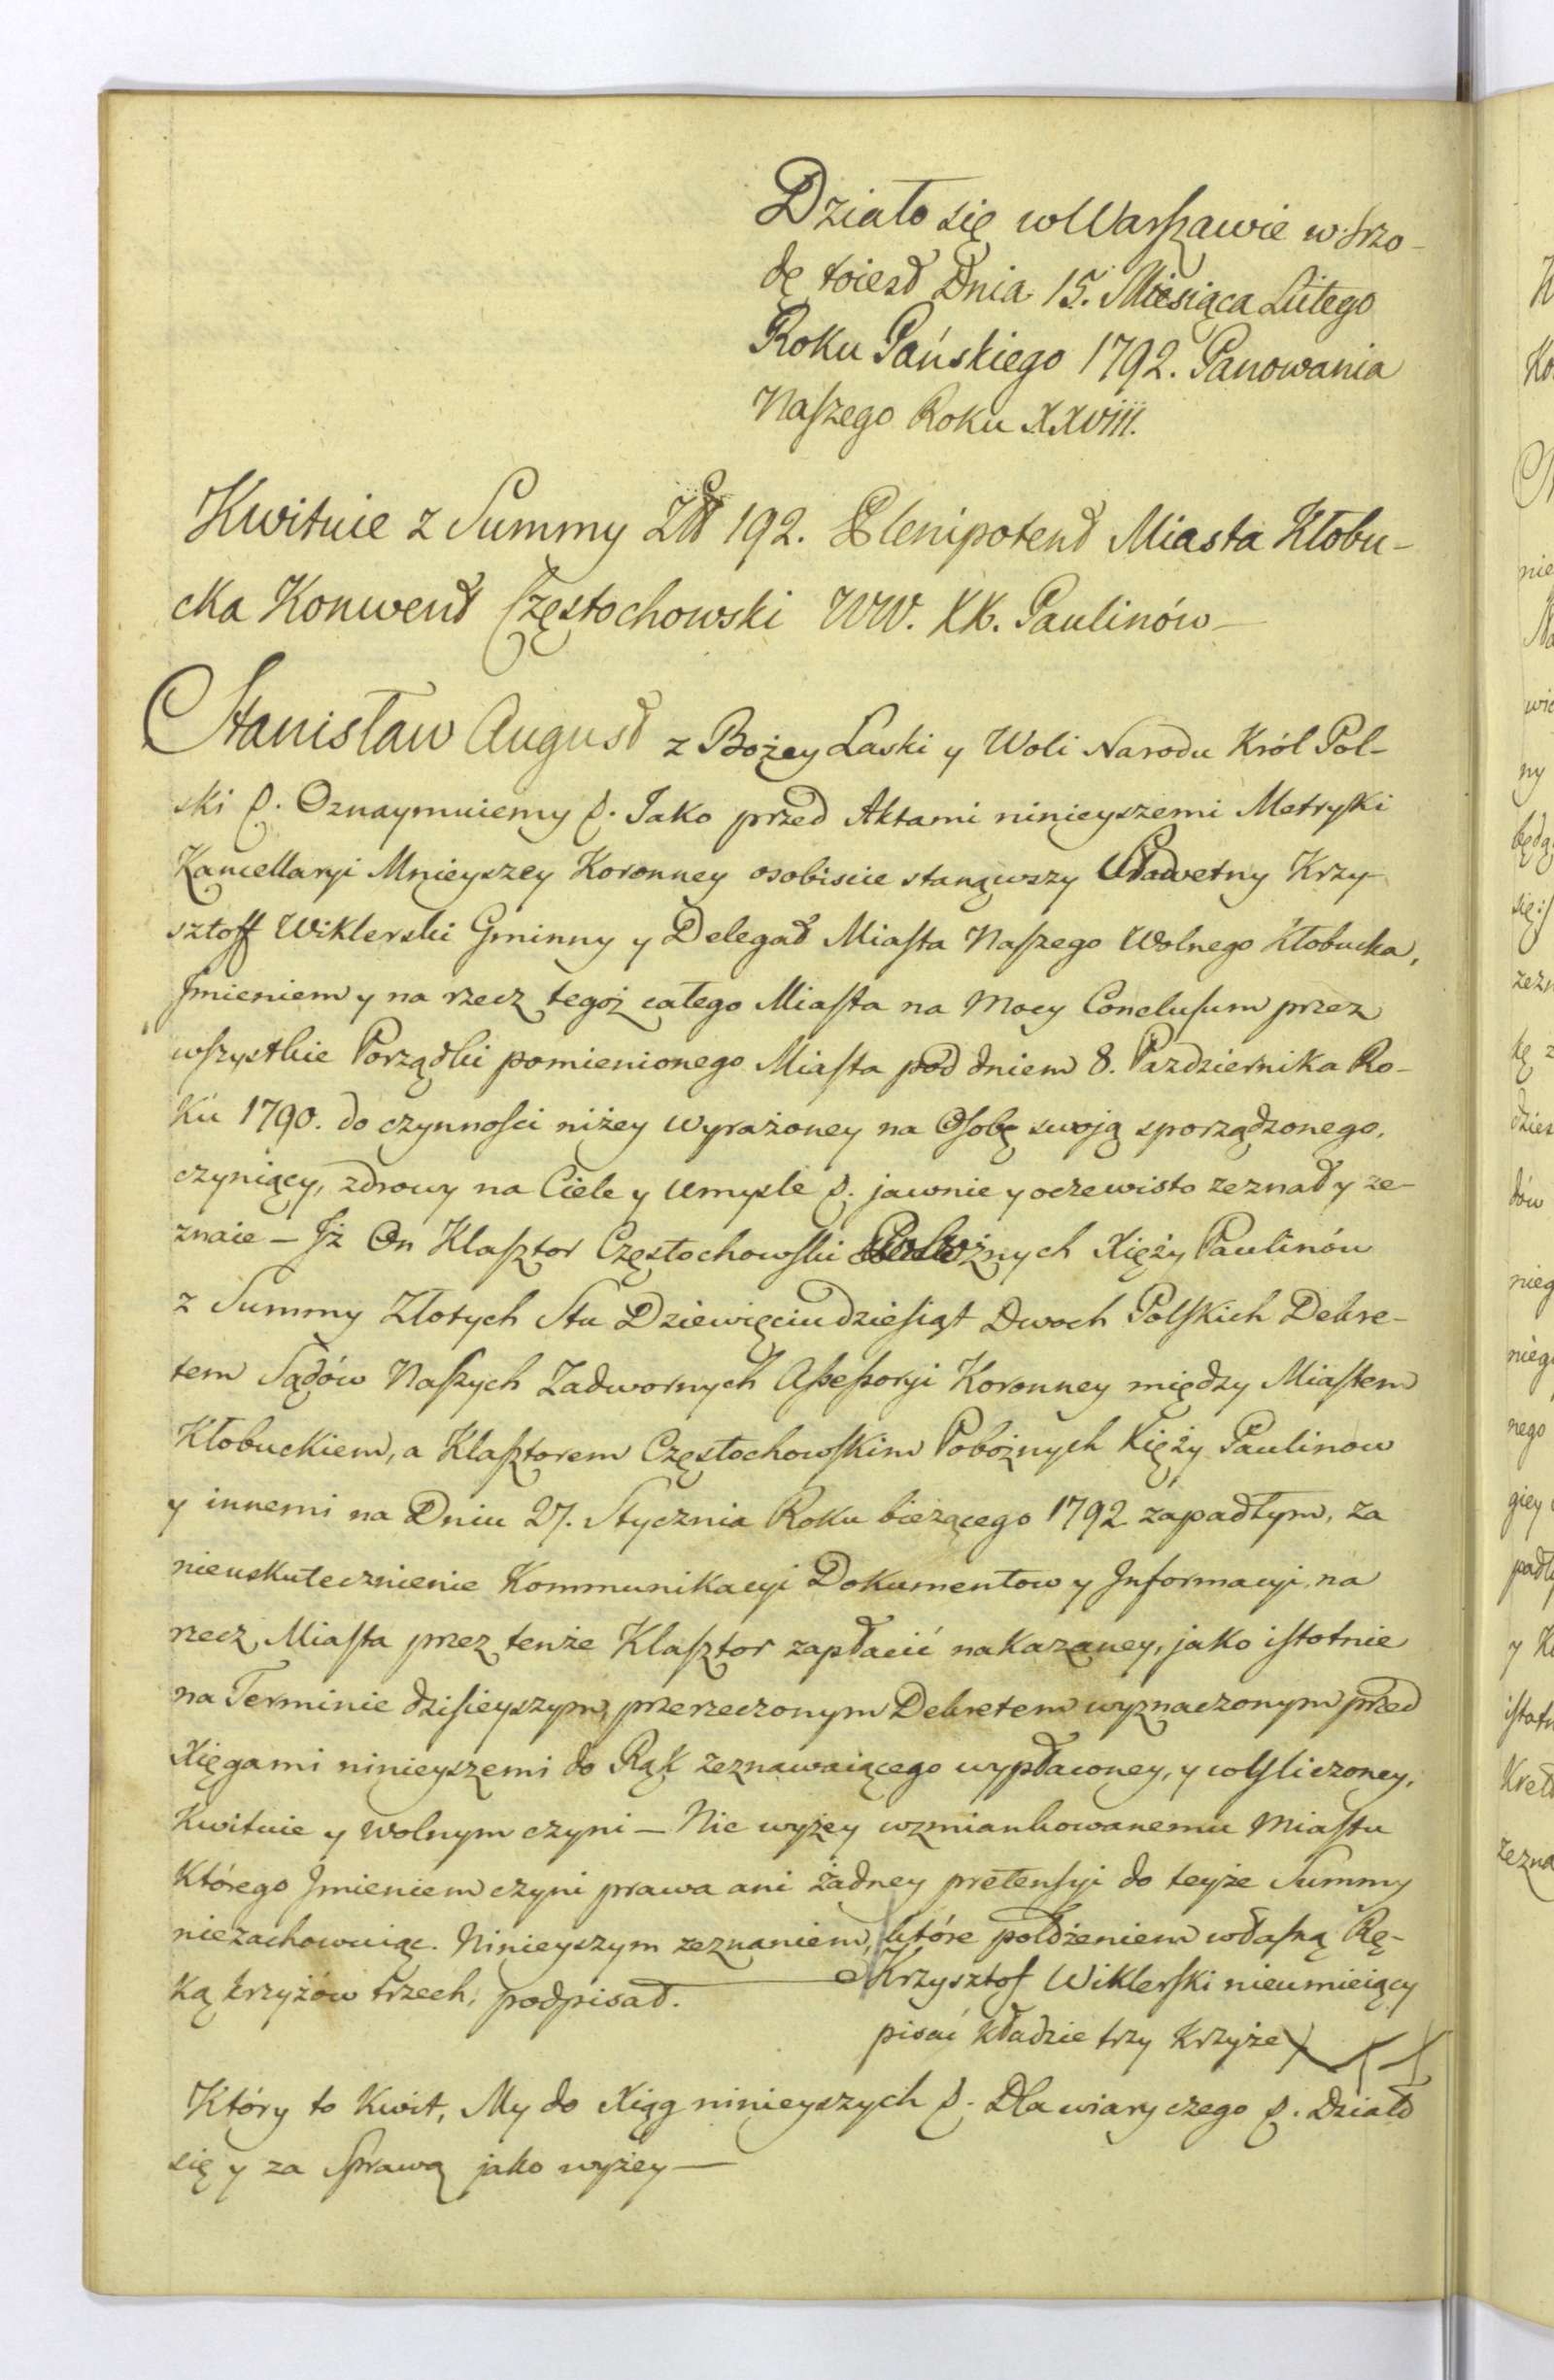 Działo się w Warszawie w Srzo-
dę toiest Dnia 15. Miesiąca Lutego
Roku Pańskiego 1792. Panowania
Naszego Roku XXVIII.
Kwituie z Summy Złł 192. Plenipotent Miasta Kłobu-
cka Konwent Częstochowski WW. XX. Paulinów
Stanisław August z Bożey Łaski y Woli Narodu Król Pol-
ski &. Oznaymuiemy &. Jako przed Aktami ninieyszemi Metryki
Kancellaryi Mnieyszey Koronney osobiscie stanąwszy Sławetny Krzy-
sztoff Wiklerski Gminny y Delegat Miasta Naszego Wolnego Kłobucka,
Jmieniem y na rzecz tegoż całego Miasta na Mocy Conclusum przez
wszystkie Porządki pomienionego Miasta pod dniem 8. Pazdziernika Ro-
ku 1790. do czynności niżey wyrażoney na Osobę swoją sporządzonego,
czyniący, zdrowy na Ciele y Umysle &. jawnie y oczewisto zeznał y ze-
znaie – Jż On Klasztor Częstochowski Pobożnych Xięży Paulinów
z Summy Złotych Stu Dziewięciudziesiąt Dwoch Polskich Dekre-
tem Sądów Naszych Zadwornych Assessoryi Koronney między Miastem
Kłobuckiem, a Klasztorem Częstochowskim Pobożnych Xięży Paulinow
y innemi na Dniu 27. Stycznia Roku bieżącego 1792 zapadłym, za
nieuskutecznienie Kommunikacyi Dokumentow y Jnformacyi, na
rzecz Miasta przez tenże Klasztor zapłacić nakazaney, jako istotnie
na Terminie dzisieyszym, przerzeczonym Dekretem wyznaczonym przed
Xięgami ninieyszemi do Rąk zeznawaiącego wypłaconey, y wyliczoney,
Kwituie y wolnym czyni – Nic wyżey wzmiankowanemu Miastu
Którego Jmieniem czyni prawa ani żadney pretensyi do teyże Summy
niezachowuiąc. Ninieyszym zeznaniem, które położeniem własną Rę-
ką krzyżów trzech, podpisał. Krzysztof Wiklerski nieumieiący
pisać kładzie trzy krzyże XXX
Który to Kwit, My do Xiąg ninieyszych &. Dla wiary czego &. Działo
się y za Sprawą jako wyżey –